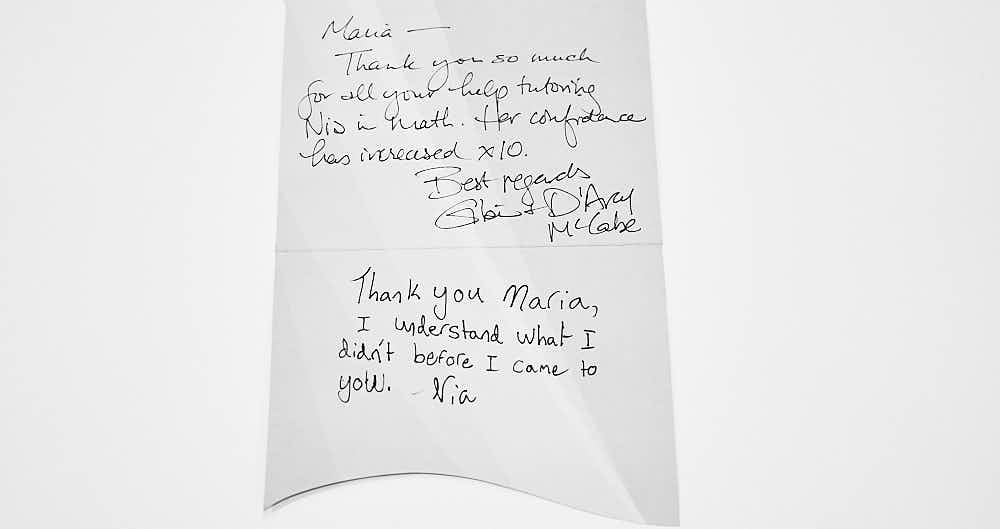 Maria —
Thank you so much
for all your help tutoring
Nia in math. Her confidence
has increased x10.
Best regards
+ D'Arcy
McCabe
Thank you Maria,
I understand what I
didn't before I came to
you. - Nia